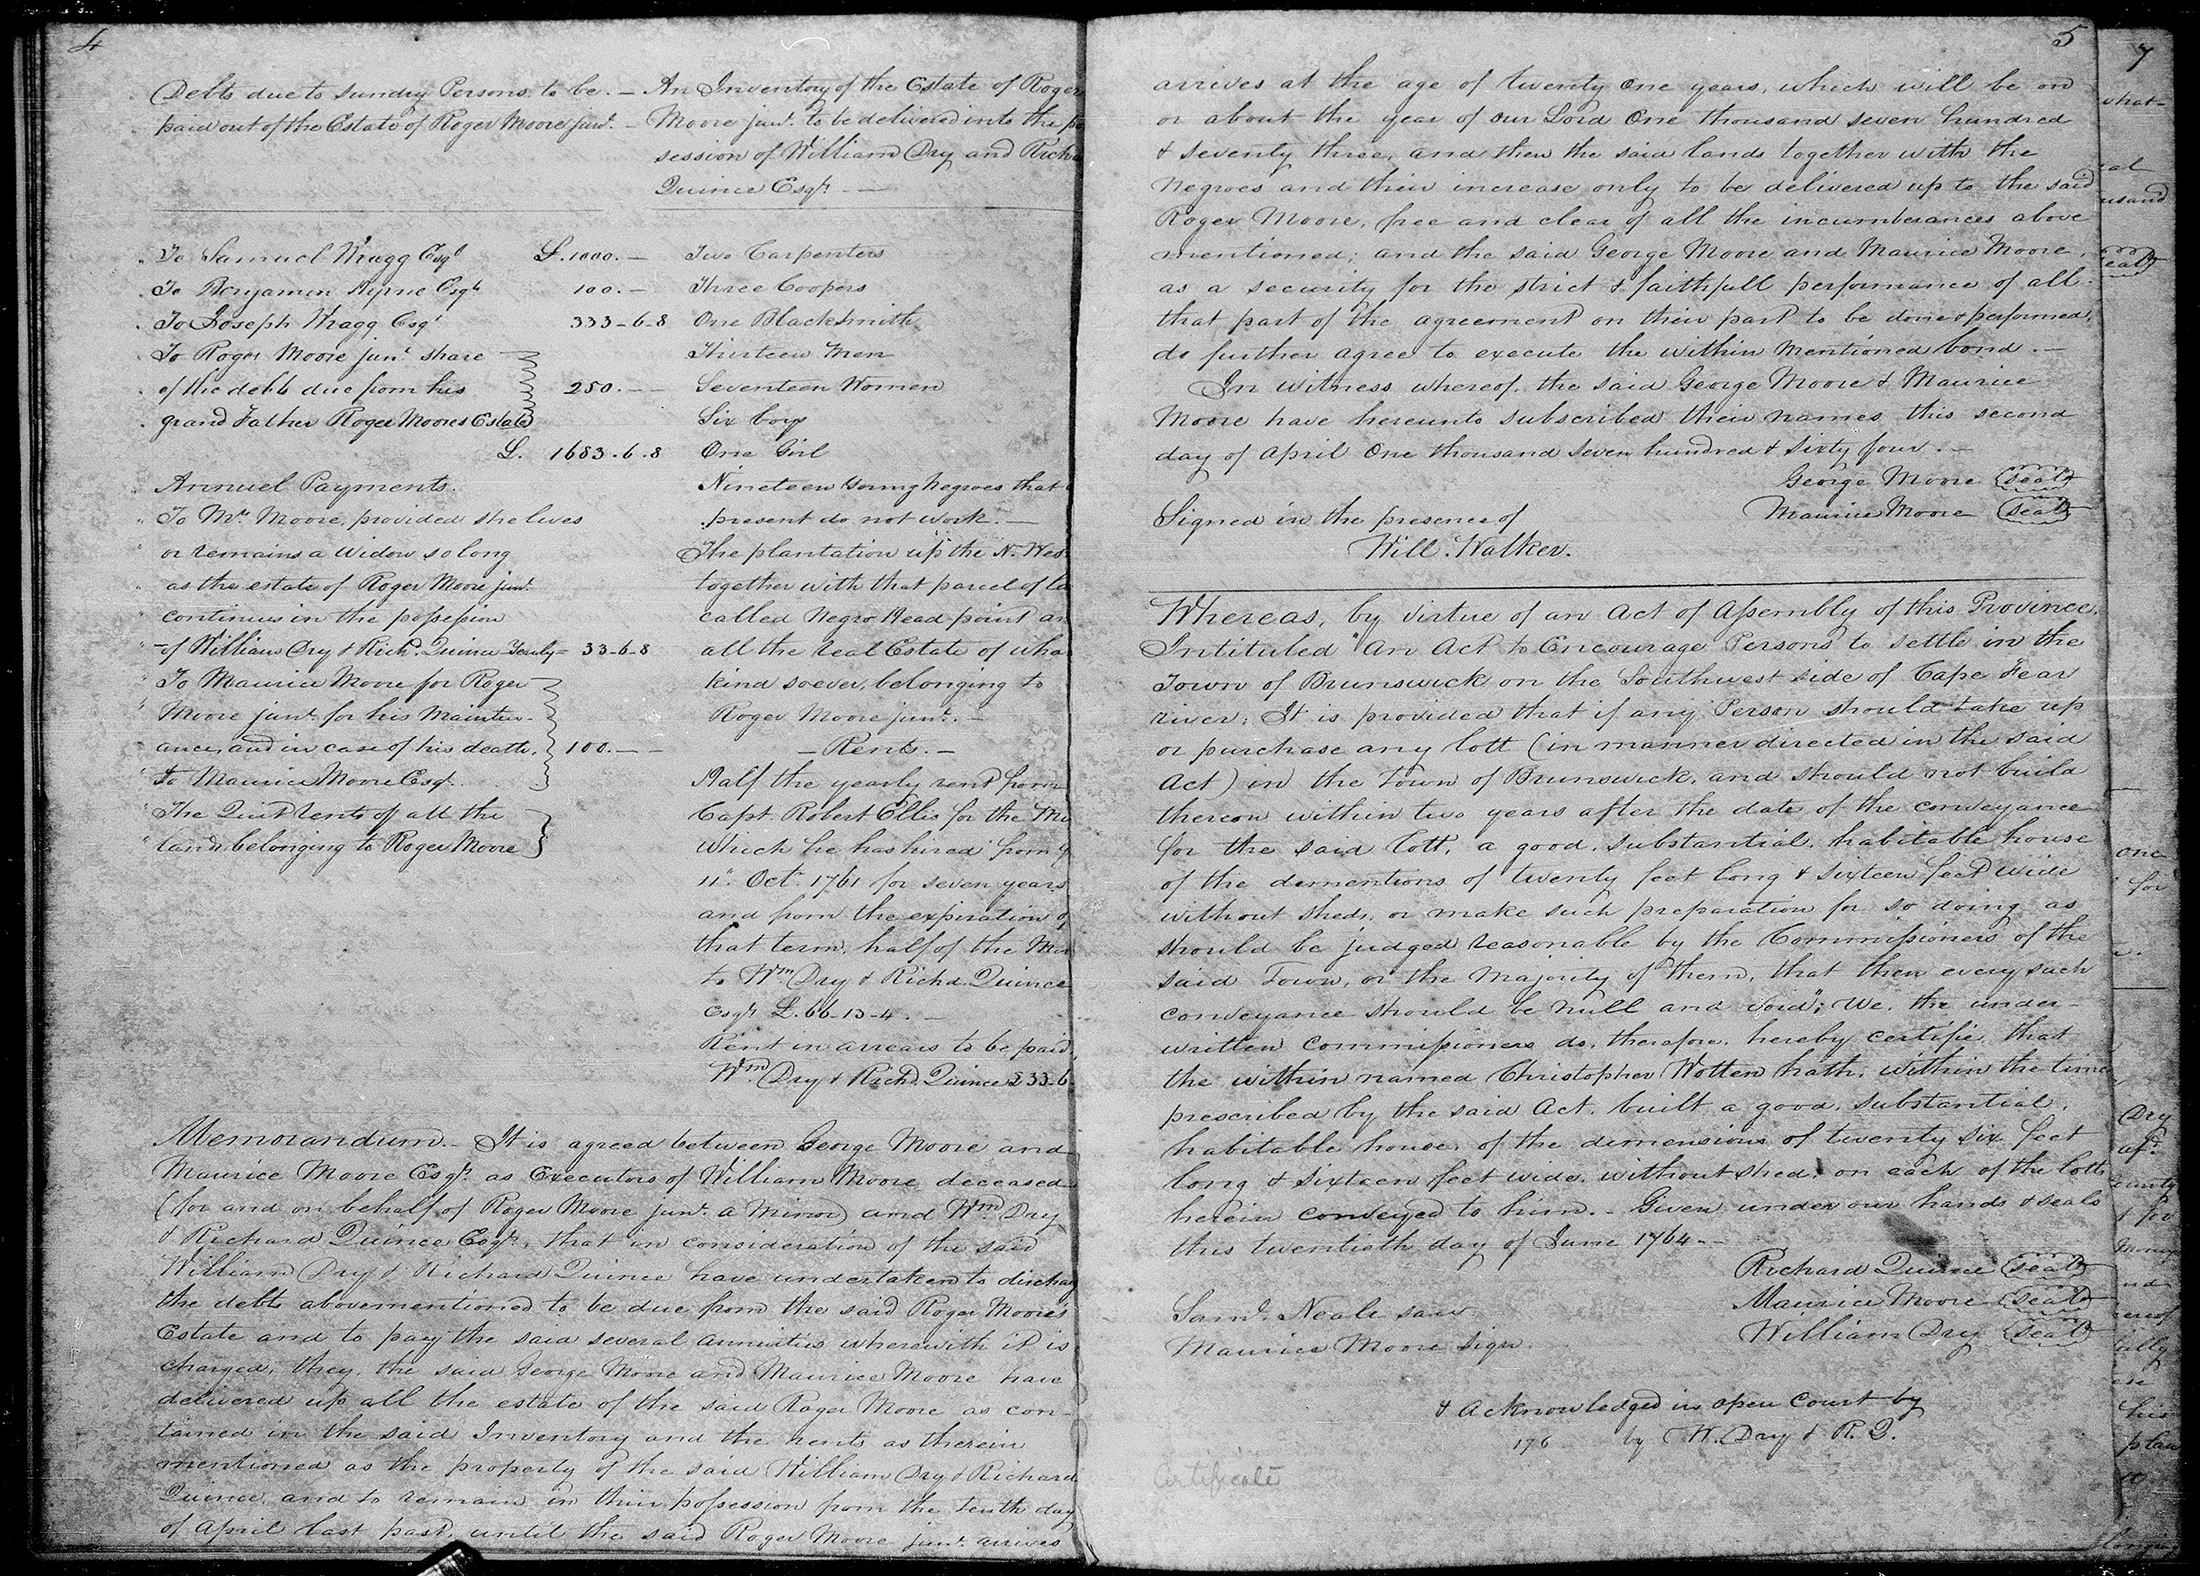 4
Debts due to sundry Persons to be. —
paid out of the Estate of Roger Moore junr. —
To Samuel Wragg Esqr £.1000. —
To Benjamin Hyrne Esqr 100. —
To Joseph Wragg Esqr 333-6-8
To Roger Moore junr. share
of the debts due from his 250. —
grand Father Roger Moores Estate
£. 1683.6.8
Annuel Payments.
To Mrs. Moore, provided she lives
or remains a Widow so long
as the estate of Roger Moore junr.
continues in the possession
of William Dry & Richd. Quince Yearly = 33-6-8
To Maurice Moore for Roger
Moore junr. for his Mainten-
ance, and in case of his death, 100. — —
To Maurice Moore Esqr.
The Quit rents of all the
lands belonging to Roger Moore
An Inventory of the Estate of Roger
Moore junr. to be delivered into the po
session of William Dry and Richa
Quince Esqrs —
Two Carpenters
Three Coopers
One Blacksmith
Thirteen Men
Seventeen Women
Six boys
One Girl
Nineteen young Negroes that
present do not work. —
The plantation up the N. Wes
together with that parcel of la
called Negro Head point an
all the real Estate of wha
kind soever, belonging to
Roger Moore junr. —
— Rents. —
Half the yearly rent from
Capt. Robert Ellis for the Mi
Which he has hired from
11th. Octr. 1761 for seven years
and from the expiration of
that term, half of the Mi
to Wm. Dry & Richd. Quince
Esqrs £.66-13-4. —
Rent in arrears to be paid
Wm. Dry & Richd. Quince £33-6
Memorandum. — It is agreed between George Moore and
Maurice Moore Esqrs. as Executors of William Moore deceased
(for and on behalf of Roger Moore junr. a Minor) and Wm. Dry
& Richard Quince Esqrs, that in consideration of the said
William Dry & Richard Quince have undertaken to dischar
the debts abovementioned to be due from the said Roger Moore's
Estate and to pay the said several annuities wherewith it is
charged, they, the said George Moore and Maurice Moore have
delivered up all the estate of the said Roger Moore as con-
tained in the said Inventory and the rents as therein
mentioned as the property of the said William Dry & Richard
Quince, and to remain in their possession from the tenth day
of April last past, until the said Roger Moore junr. arrives
5
arrives at the age of twenty one years, which will be on
or about the year of our Lord One thousand seven hundred
& seventy three, and then the said lands together with the
Negroes and their increase only to be delivered up to the said
Roger Moore, free and clear of all the incumberances above
mentioned; and the said George Moore and Maurice Moore,
as a security for the strict & faithfull performance of all
that part of the agreement on their part to be done & performed,
do further agree to execute the within mentioned bond. —
In witness whereof, the said George Moore & Maurice
Moore have hereunto subscribed their names this second
day of April One thousand seven hundred & sixty four. —
George Moore seal
Maurice Moore seal
Signed in the presence of
Will. Walker.
Whereas, by virtue of an Act of Assembly of this Province,
Intituled "An Act to Encourage Persons to settle in the
Town of Brunswick on the Southwest side of Cape Fear
river; It is provided that if any Person should take up
or purchase any lott (in manner directed in the said
Act) in the Town of Brunswick, and should not build
thereon within two years after the date of the conveyance
for the said lott, a good, substantial, habitable house
of the dimentions of twenty feet long & sixteen feet wide
without sheds, or make such preparation for so doing as
should be judged reasonable by the Commissioners of the
said Town, or the majority of them, that then every such
conveyance should be null and void"; We, the under-
written Commissioners do, therefore, hereby certifie, that
the within named Christopher Wotten hath, within the time
prescribed by the said Act, built a good, substantial,
habitable house, of the dimensions of twenty six feet
long & sixteen feet wide, without shed, on each of the lotts
herein conveyed to him. — Given under our hands & seals
this twentieth day of June 1764. —
Richard Quince seal
Maurice Moore seal
William Dry seal
Saml. Neale saw
Maurice Moore sign.
& Acknowledged in open Court by
176 by W. Dry & R. Q.
Certificate
7
what-
seal
one
for
Dry
his